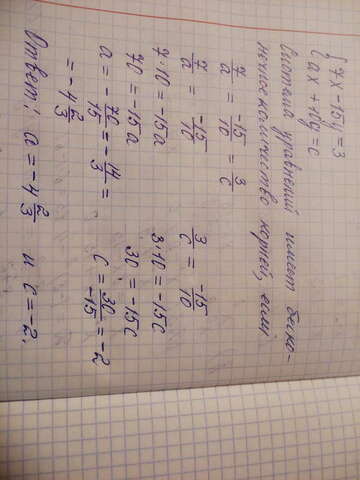 { 7x - 15y = 3
{ ax + 10y = c
Система уравнений имеет беско-
нечное множество корней, если
7/a = -15/10 = 3/c
7/a = -15/10    3/c = -15/10
7·10 = -15a    3·10 = -15c
70 = -15a    30 = -15c
a = -70/15 = -14/3 =    c = 30/-15 = -2
= -4 2/3
Ответ: a = -4 2/3 и c = -2.